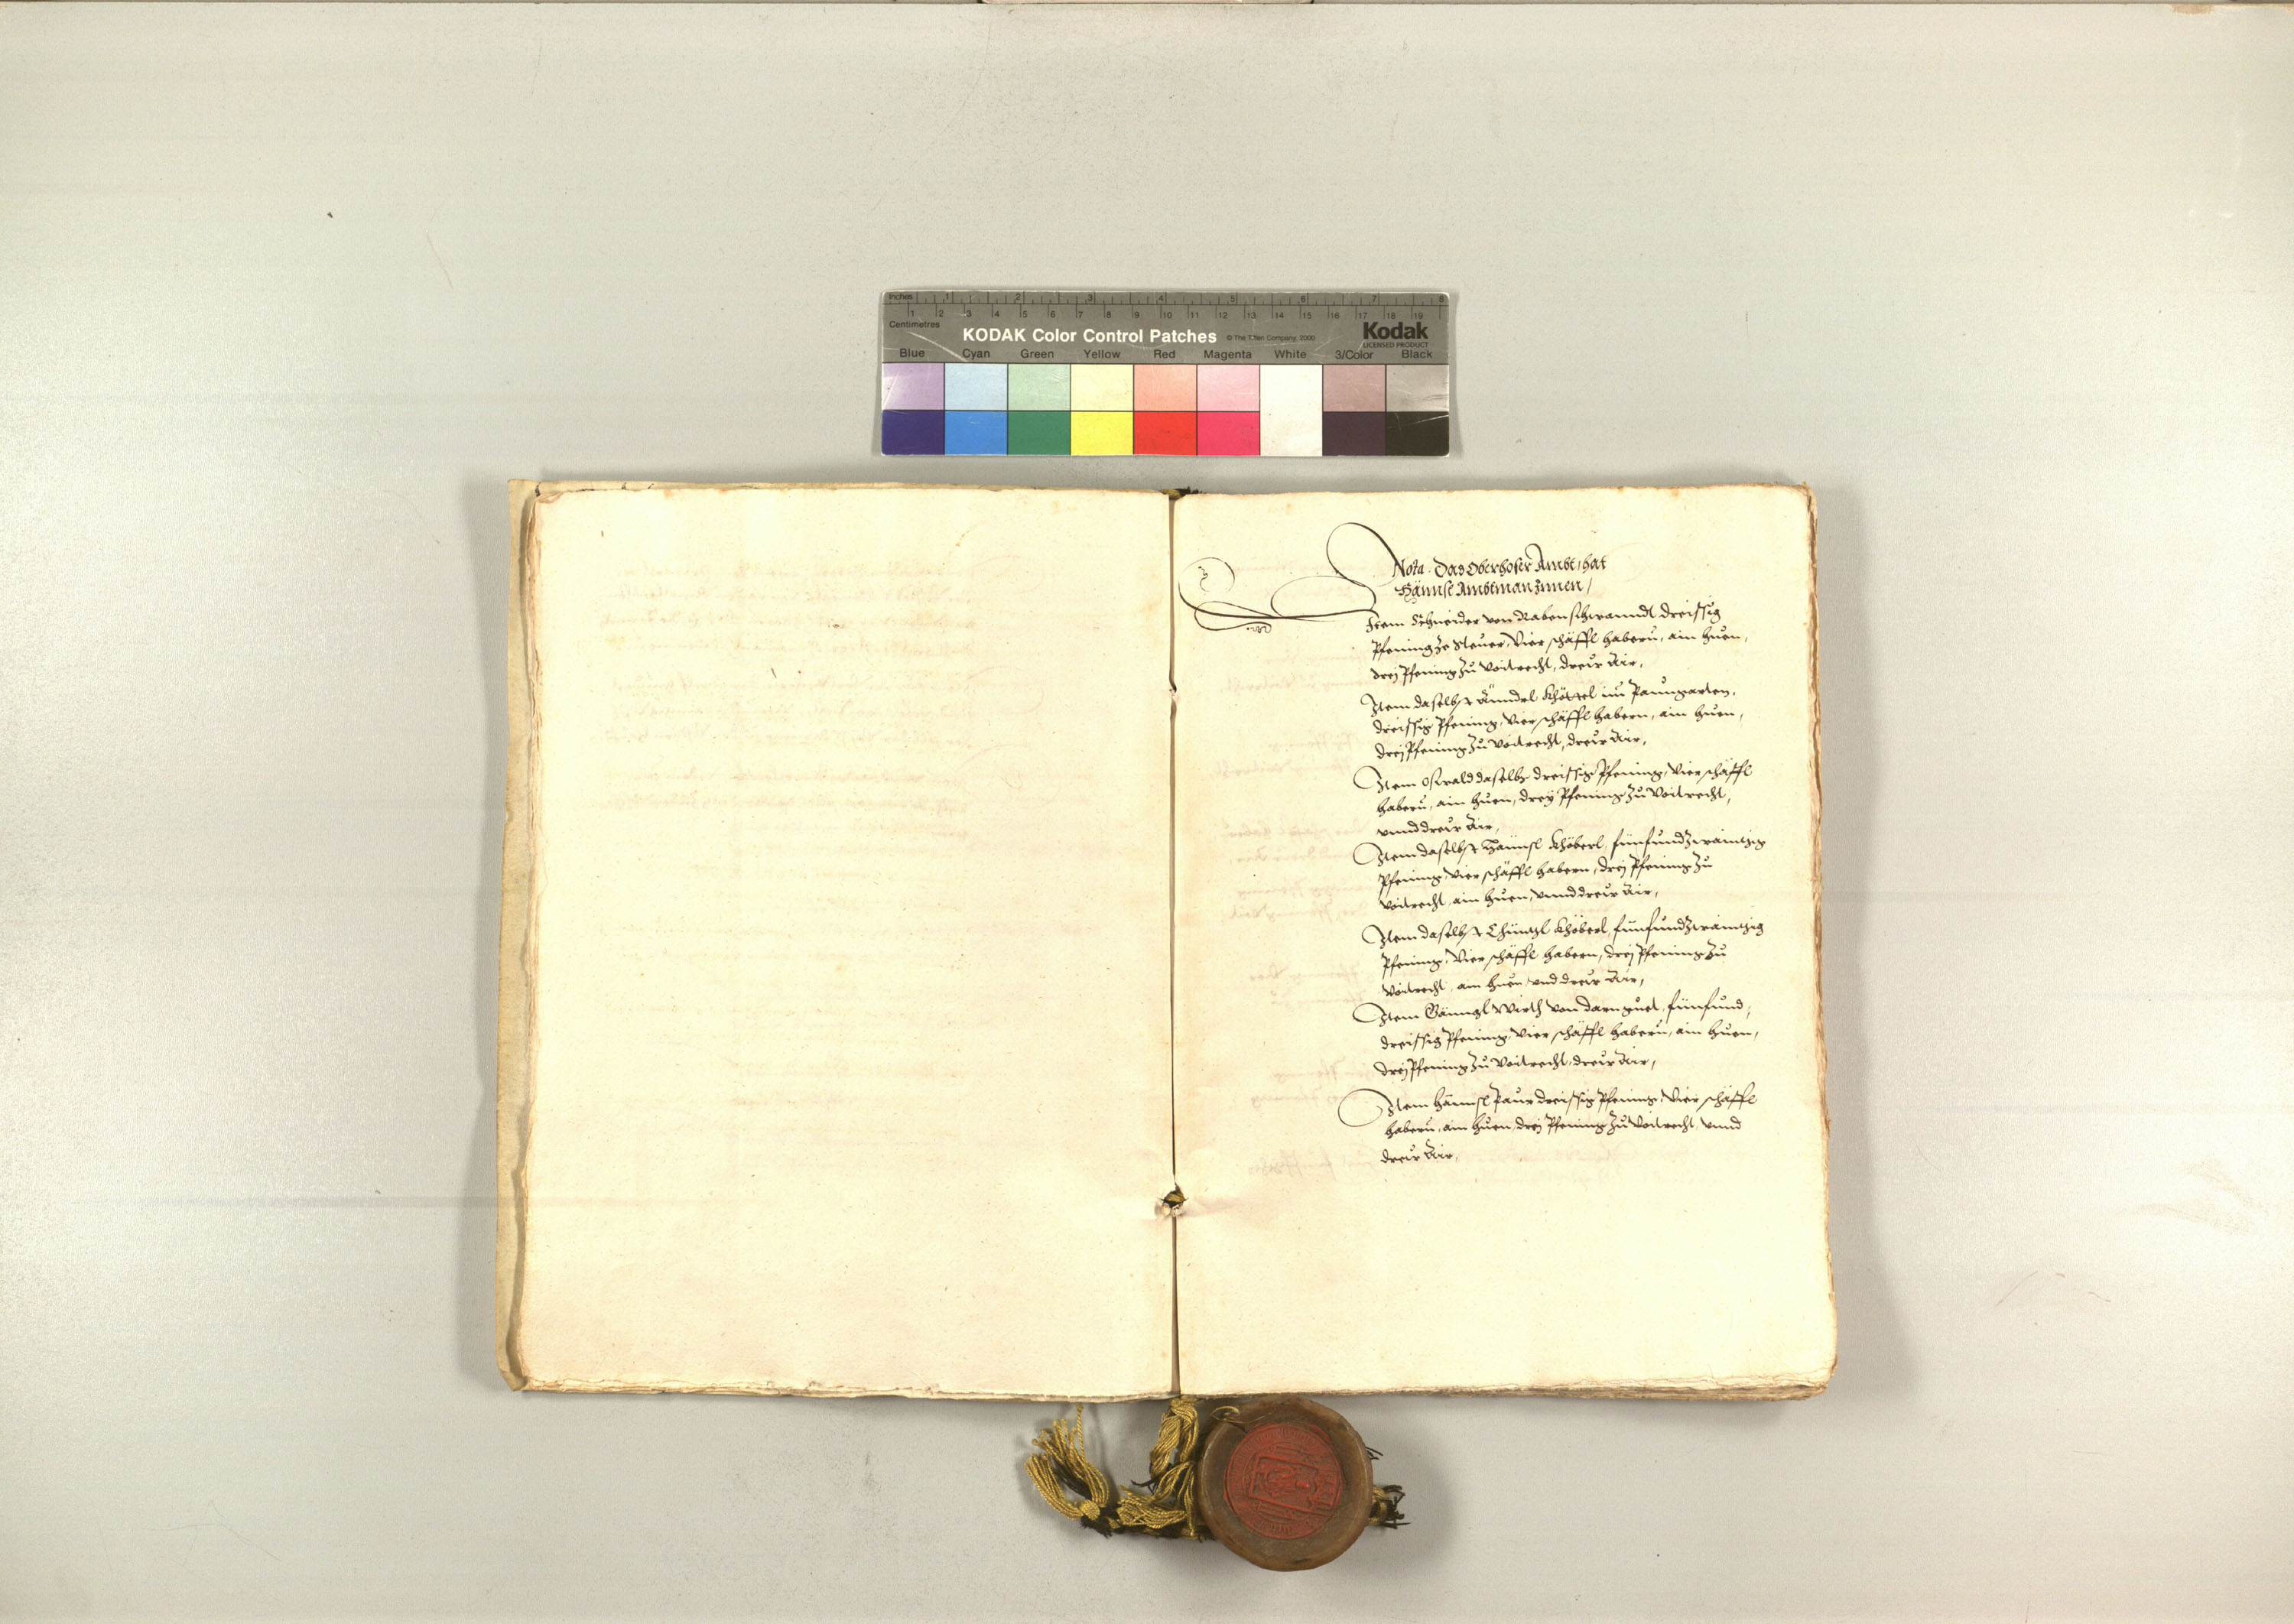 Inches 1 2 3 4 5 6 7 8
1 2 3 4 5 6 7 8 9 10 11 12 13 14 15 16 17 18 19
Centimetres
KODAK Color Control Patches © The Tiffen Company, 2000 Kodak
LICENSED PRODUCT
Blue Cyan Green Yellow Red Magenta White 3/Color Black
Nota. Das Oberhofer Ambt, hat
Hännsl Ambtman Innen /
Item Schneider von Rabenschwanndt dreissig
Pfening ze Steuer, Vier schäffl habern, ain huen,
drej Pfening zu Voitrecht, dreir Air,
Item daselbst Änndrl Khöberl im Paumgarten,
dreissig Pfening, Vier schäffl habern, ain huen,
drej Pfening zu Voitrecht, dreir Air,
Item Oswald daselbs dreissig Pfening, Vier schäffl
habern, ain huen, drey Pfening zu Voitrecht,
vnnd dreir Air,
Item daselbst Hännsl Khöberl, fünfundzwaintzig
Pfening, Vier schäffl habern, drej Pfening zu
Voitrecht, ain huen, vnnd dreir Air,
Item daselbst Chüntzl Khöberl, fünfundzwaintzig
Pfening, Vier schäffl habern, drej Pfening zu
Voitrecht, ain huen, vnd dreir Air,
Item Gänngl Wirth von farngüet, fünfund,
dreissig Pfening, Vier schäffl habern, ain huen,
drej Pfening zu Voitrecht, dreir Air,
Item Hännsl Paur dreissig Pfening, Vier schäffl
habern, ain huen, drej Pfening zu Voitrecht, vnnd
dreir Air,